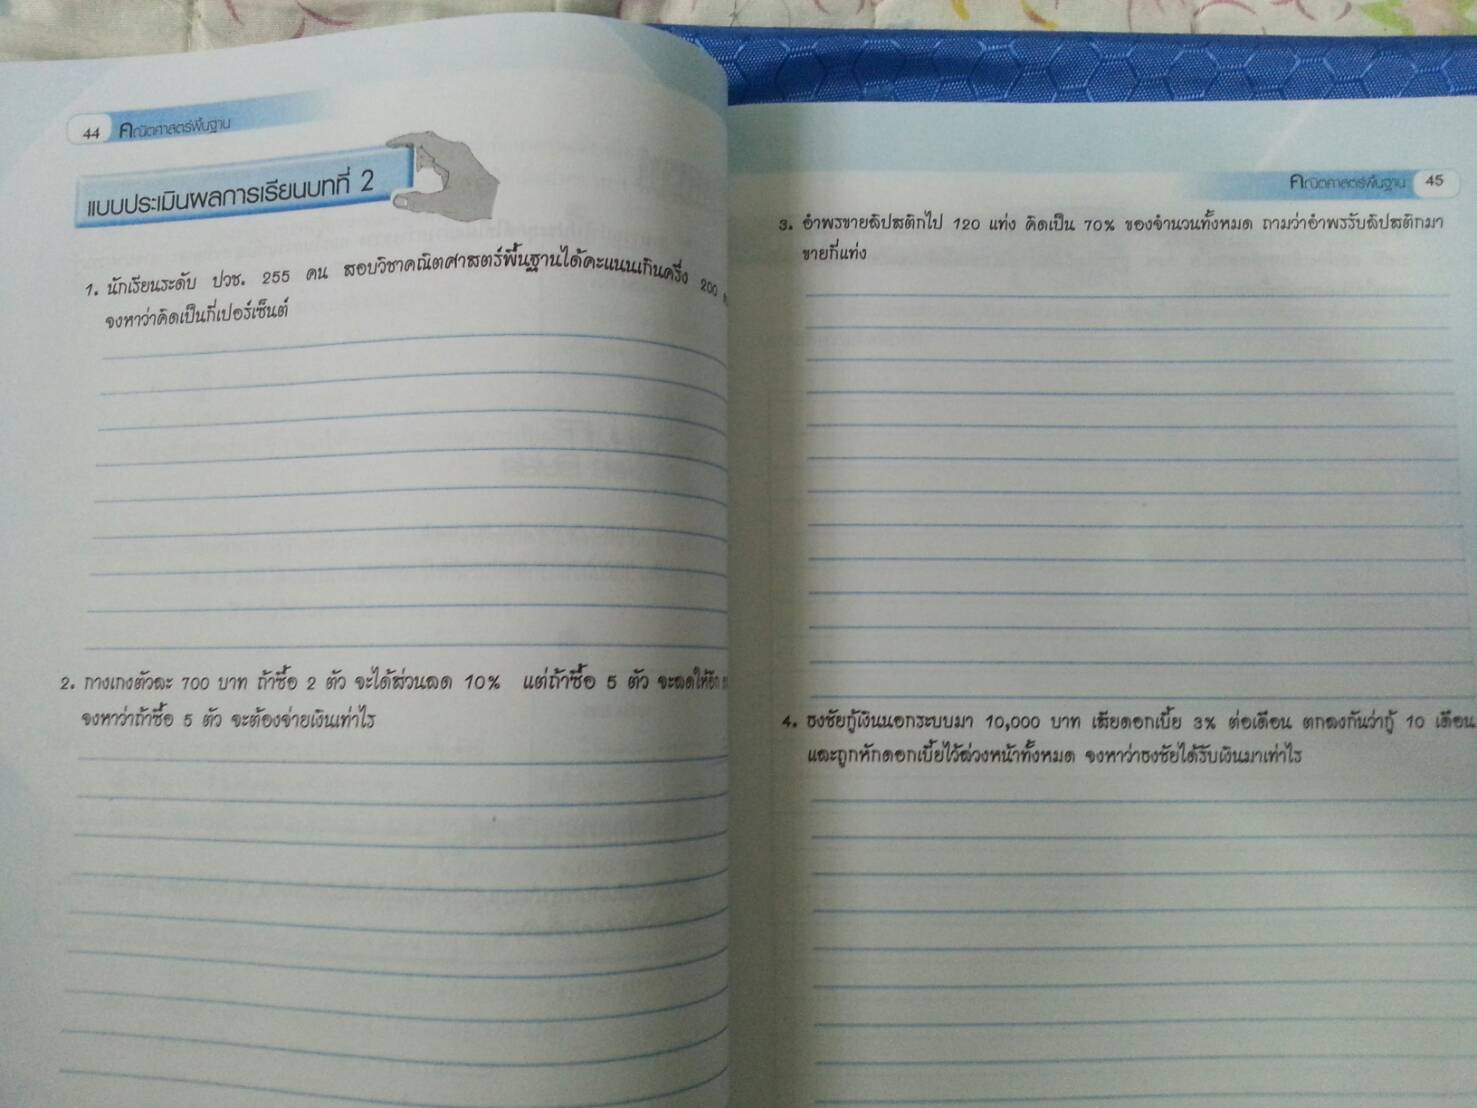 44 คณิตศาสตร์พื้นฐาน
แบบประเมินผลการเรียนบทที่ 2
1. นักเรียนระดับ ปวช. 255 คน สอบวิชาคณิตศาสตร์พื้นฐานได้คะแนนเกินครึ่ง 200
จงหาว่าคิดเป็นกี่เปอร์เซ็นต์
2. กางเกงตัวละ 700 บาท ถ้าซื้อ 2 ตัว จะได้ส่วนลด 10% แต่ถ้าซื้อ 5 ตัว จะลดให้อีก
จงหาว่าถ้าซื้อ 5 ตัว จะต้องจ่ายเงินเท่าไร
คณิตศาสตร์พื้นฐาน 45
3. อำพรขายลิปสติกไป 120 แท่ง คิดเป็น 70% ของจำนวนทั้งหมด ถามว่าอำพรรับลิปสติกมา
ขายกี่แท่ง
4. ธงชัยกู้เงินนอกระบบมา 10,000 บาท เสียดอกเบี้ย 3% ต่อเดือน ตกลงกันว่ากู้ 10 เดือน
และถูกหักดอกเบี้ยไว้ล่วงหน้าทั้งหมด จงหาว่าธงชัยได้รับเงินมาเท่าไร